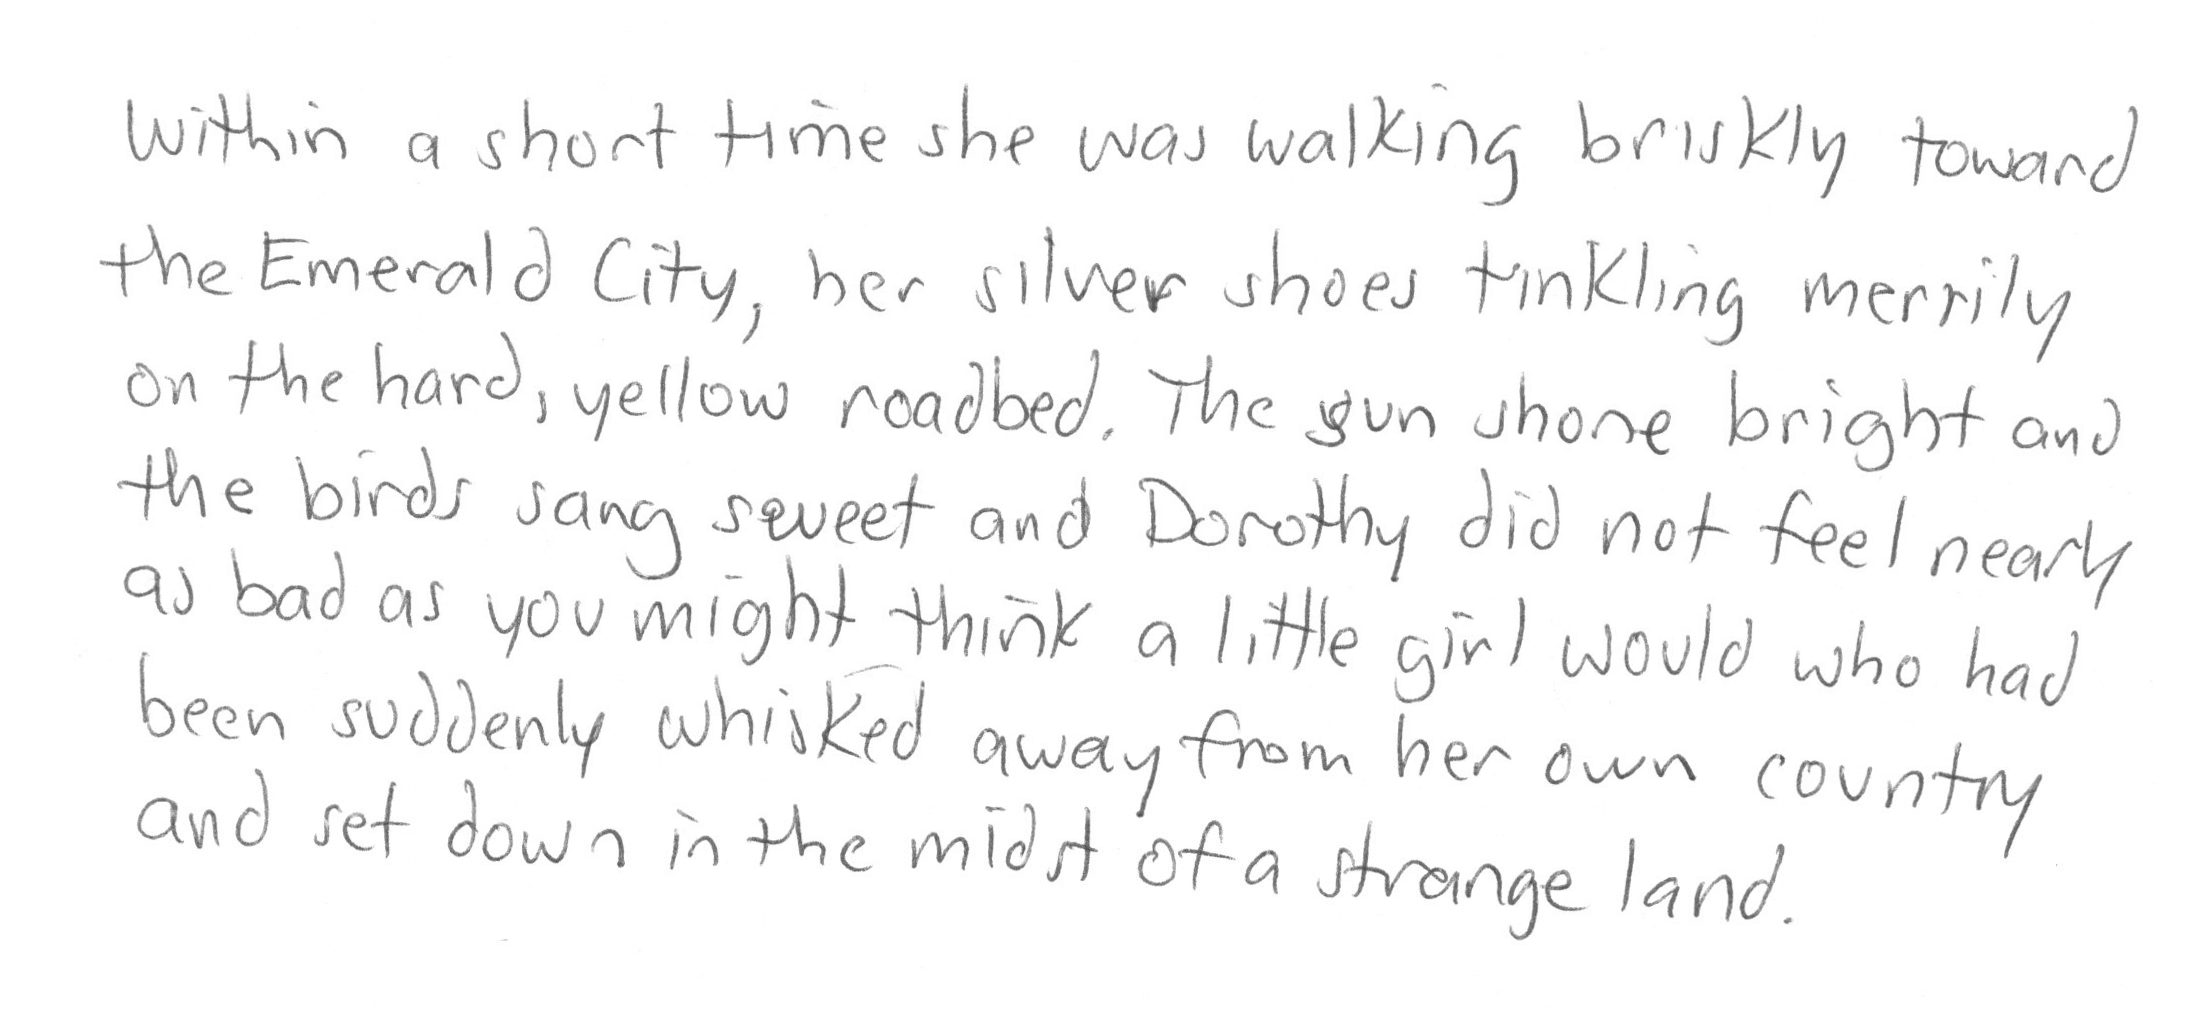 Within a short time she was walking briskly toward
the Emerald City, her silver shoes tinkling merrily
on the hard, yellow roadbed. The sun shone bright and
the birds sang sweet and Dorothy did not feel nearly
as bad as you might think a little girl would who had
been suddenly whisked away from her own country
and set down in the midst of a strange land.